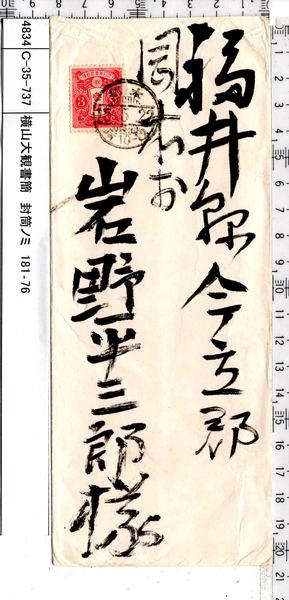 福井縣今立郡
岡本村
岩野平三郎様
4834 C-35-737 横山大観書簡 封筒ノミ 181-76
3